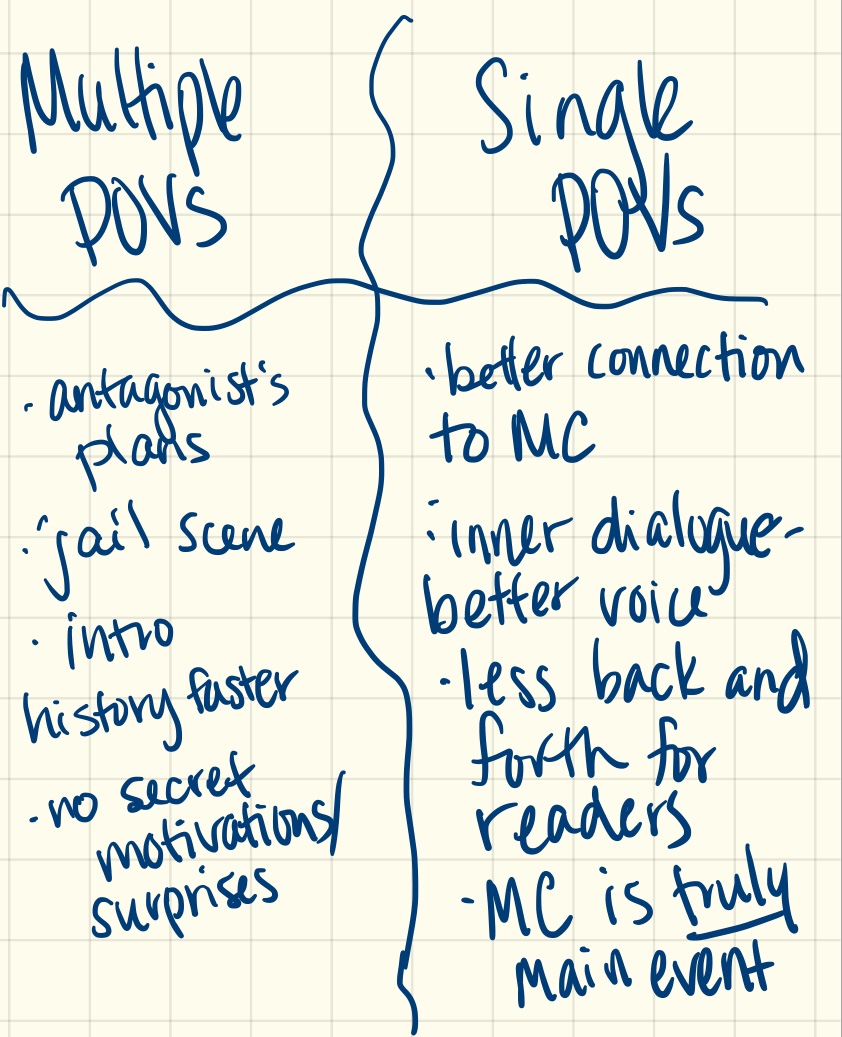 Multiple
POVs
· antagonist's
plans
· jail scene
· intro
history faster
· no secret
motivations/
surprises
Single
POVs
· better connection
to MC
· inner dialogue-
better voice
· less back and
forth for
readers
- MC is truly
main event